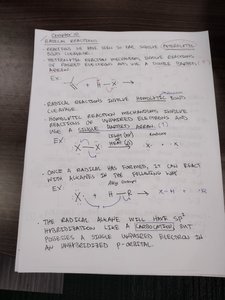 CHAPTER 10
RADICAL REACTIONS
- REACTIONS WE HAVE SEEN SO FAR INVOLVE HETEROLYTIC
BOND CLEAVAGE.
- HETEROLYTIC REACTION MECHANISMS INVOLVE REACTIONS
OF PAIRED ELECTRONS AND USE A DOUBLE BARBED
ARROW.
EX:
H-X
- RADICAL REACTIONS INVOLVE HOMOLYTIC BOND
CLEAVAGE.
- HOMOLYTIC REACTION MECHANISMS INVOLVE
REACTIONS OF UNPAIRED ELECTRONS AND
USE A SINGLE BARBED ARROW
EX:
LIGHT (hv)
OR
HEAT (Δ)
Radicals
X-X
X· ·X
- ONCE A RADICAL HAS FORMED, IT CAN REACT
WITH ALKANES IN THE FOLLOWING WAY
EX:
X· + H-R → X-H + ·R
- THE RADICAL ALKANE WILL HAVE SP²
HYBRIDIZATION LIKE A KARBOCATION BUT
POSSESS A SINGLE UNPAIRED ELECTRON IN
AN UNHYBRIDIZED P-ORBITAL.